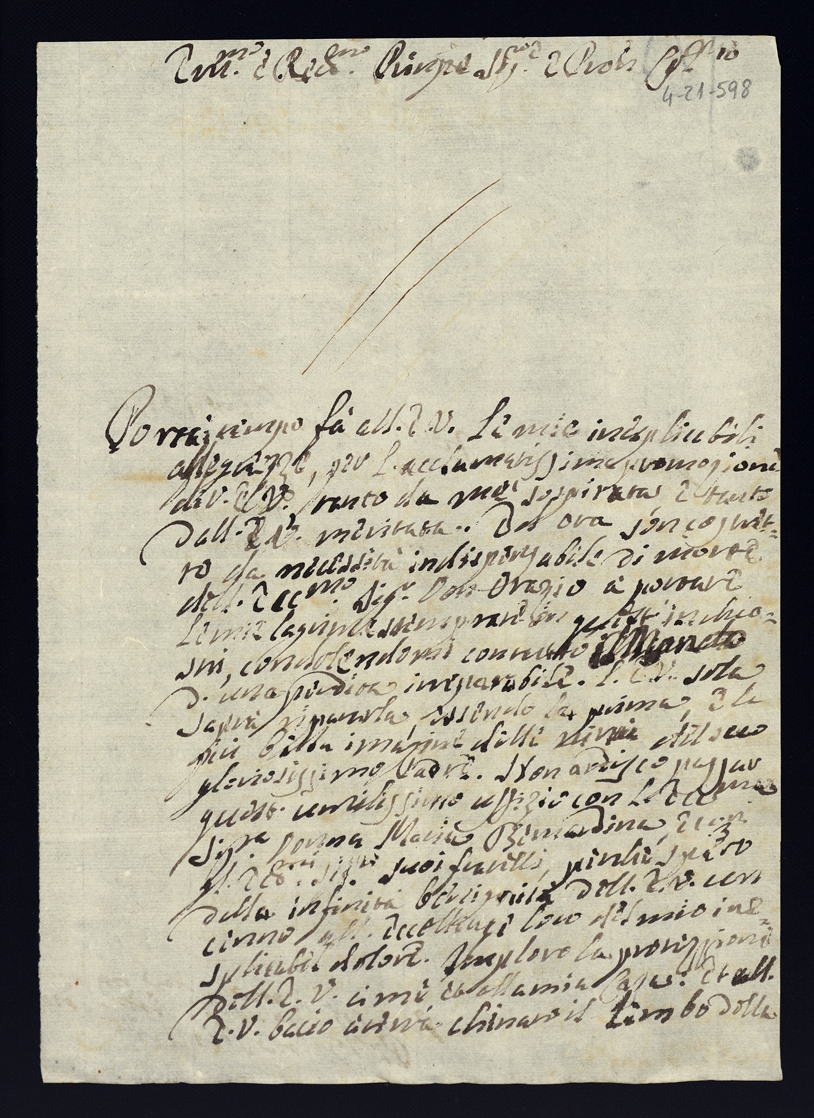 Em.mo e Rev.mo Principe Sig.re e Pron
4-21-598
Portai tempo fà all. E.V. le mie inesplicabili
allegrezze, per l. acclamatissima promozione
di V. E. V. tanto da me sospirata e tanto
dall. E.V. meritata. Ed ora son costret-
to da necessità indispensabile di morte
dell. Ecc.mo Sig.r Don Orazio a portare
le mie lagrime stemprate in questi inchio=
stri, condolendomi con tutto il Mondo
d. una perdita irreparabile. L. E.V. sola
saprà ripararla essendo la prima, e la
più bella imagine delle virtù del suo
gloriosissimo Padre. Non ardisco passar
quest. umilissimo uffizio con l. Ecc.ma
Sig.ra Donna Maria Bernardina, e con
gl. Ecc.mi Sig.ri suoi fratelli, perchè spero
dalla infinita benignità dell. E.V. un
cenno all. Eccellenze loro del mio ine=
splicabil dolore. Imploro la protezzione
dell. E. V. a me et alla mia Casa. Et all.
E.V. bacio chinato il lembo della